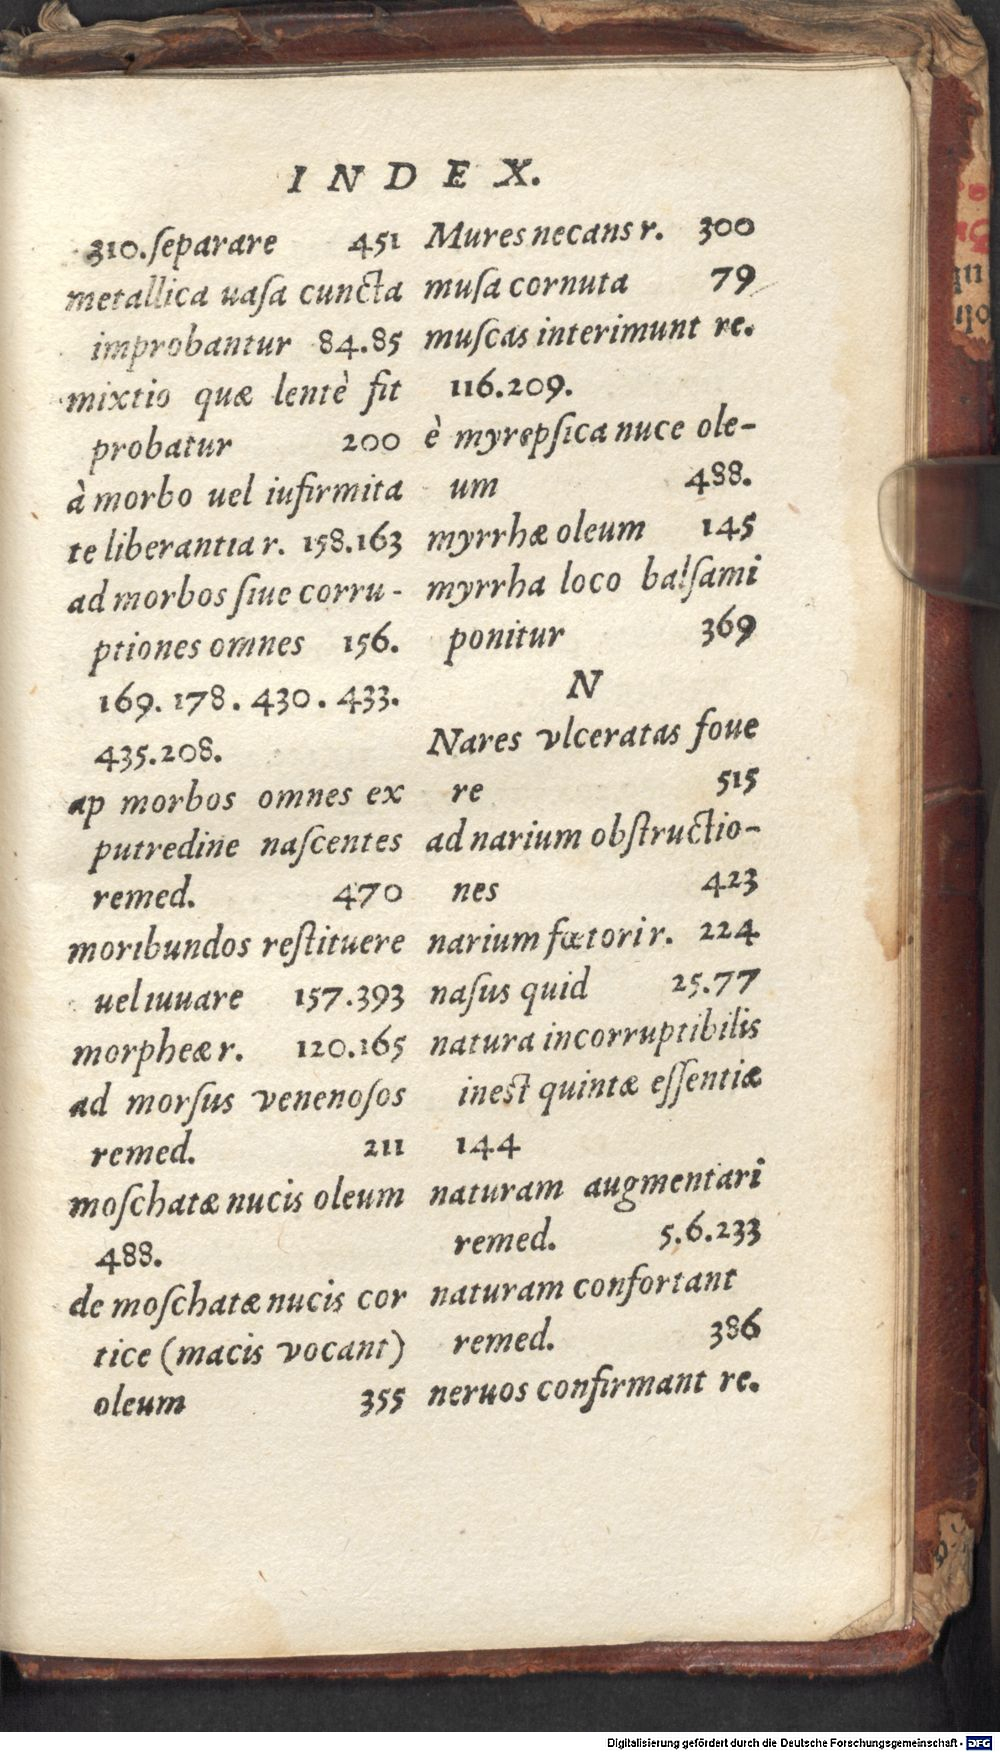 INDEX.
310.ſeparare 451
metallica uaſa cuncta
improbantur 84.85
mixtio quæ lentè fit
probatur 200
à morbo uel iufirmita
te liberantia r. 158.163
ad morbos ſiue corru-
ptiones omnes 156.
169.178.430.433.
435.208.
ap morbos omnes ex
putredine naſcentes
remed. 470
moribundos reſtituere
uel iuuare 157.393
morpheæ r. 120.165
ad morſus venenoſos
remed. 211
moſchatæ nucis oleum
488.
de moſchatæ nucis cor
tice (macis vocant)
oleum 355
Mures necans r. 300
muſa cornuta 79
muſcas interimunt re.
116.209.
è myrepſica nuce ole-
um 488.
myrrhæ oleum 145
myrrha loco balſami
ponitur 369
N
Nares vlceratas foue
re 515
ad narium obſtructio-
nes 423
narium fœtori r. 224
naſus quid 25.77
natura incorruptibilis
ineſt quintæ eſſentiæ
144
naturam augmentari
remed. 5.6.233
naturam confortant
remed. 386
neruos confirmant re.
Digitalisierung gefördert durch die Deutsche Forschungsgemeinschaft - DFG